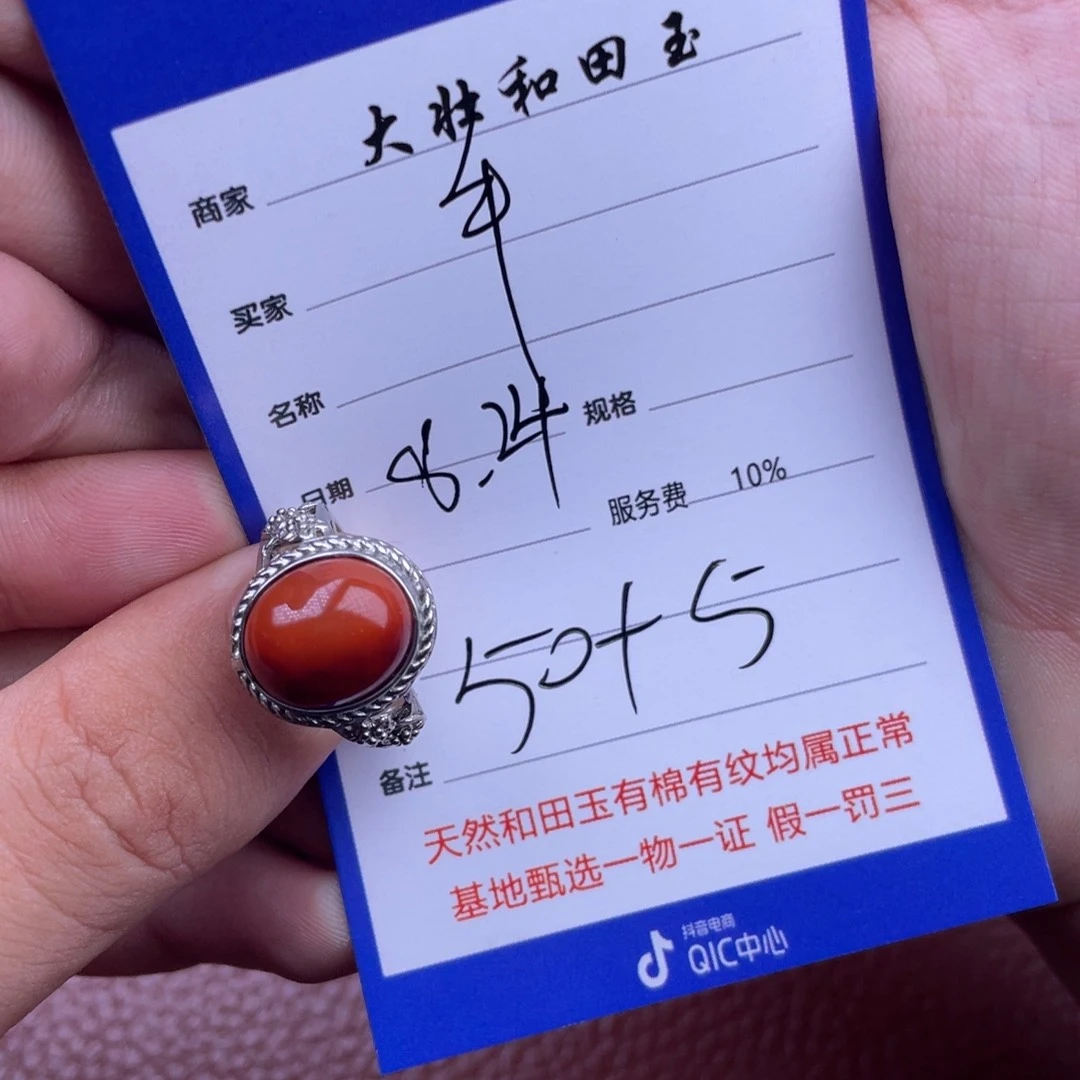 大壮和田玉
商家
买家
名称
日期 8.24 规格
服务费 10%
50+5
备注
天然和田玉有棉有纹均属正常
基地甄选一物一证 假一罚三
抖音电商
QIC中心